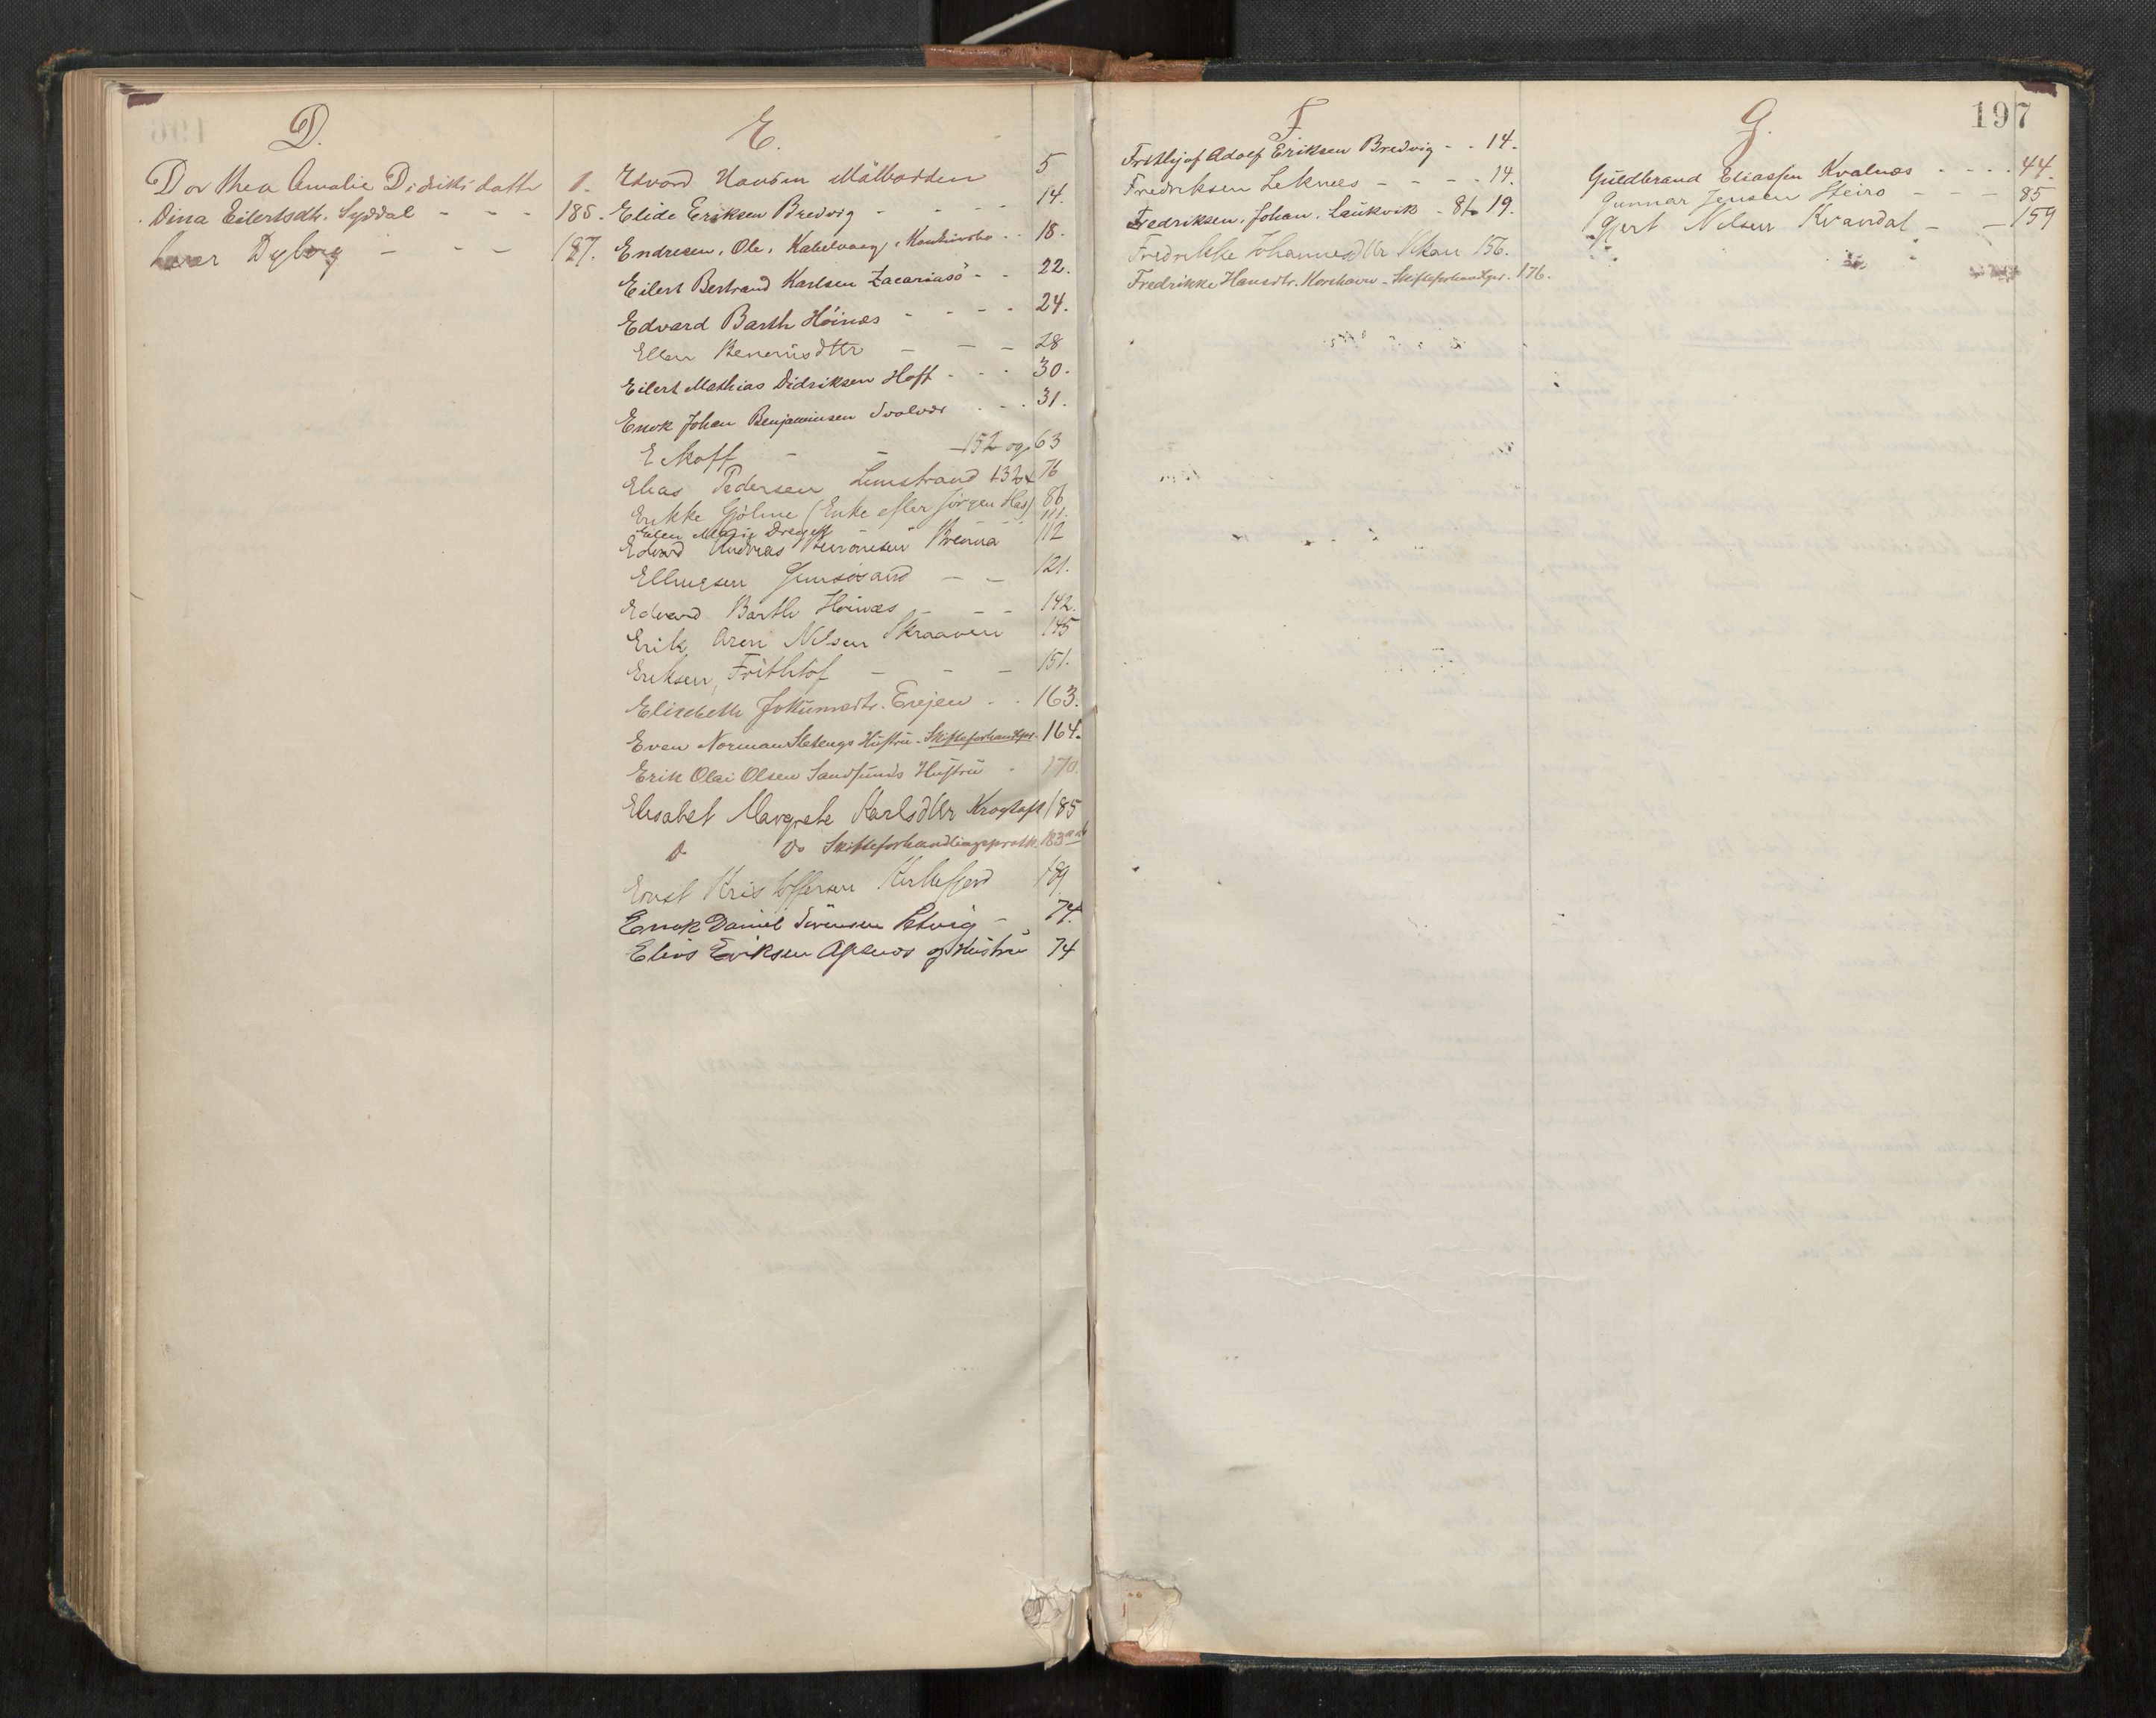 D.
Dorthea Amalie Didriksdattr 1.
Dina Eilertsdtr. Syddal - - - 185.
Dyberg - - - 187.
E.
Edvard Hansen 5
Elide Eriksen Bredvig - - - 14.
Endresen, Ole, Kabelvaag, 18.
Eilert Bertrand Karlsen Zacariasö - - 22.
Edvard Barth Höinæs - - - - 24.
Ellen - - - 28
Eilert Mathias Didriksen Hoff - - - 30.
Enok Johan Benjaminsen Svolvær - - - 31.
E - - 152 og 63
Elias Pedersen Limstrand 132 76
Gjölme (Enke efter Jörgen 86
Ellen Marie Dreyer 111.
Edvard Andreas Brenna 112
Ellingsen Gimsösand - - 121.
Edvard Barth Höinæs - - - 142.
Erik Aren Nilsen Skraaven 145
Eriksen, Frithtof - - - 151.
Elisebeth Jokumsdtr. - - 163.
Even Norman Hustru - Skifteforhandlpr. 164.
Erik Olai Olsen Sandsunds Hustru - 170.
Elisabet Margrete Karlsdttr 185
Do Do Skifteforhandlingsprotk. 183
Ernst Kristoffersen Kirkefjord 189
Enok Daniel Sörensen Petvig - 74.
Elias Eriksen og Hustru 74
F
Frithjof Adolf Eriksen Bredvig - - 14.
Fredriksen Leknes - - - - 14.
Fredriksen, Johan, Laukvik - 86 19.
Fredrikke Johannesdttr 156.
Fredrikke Hansdtr. - Skifteforhandlpr. 176.
197
G.
Guldbrand Eliassen Kvalnæs - - - - 44.
Gunnar Jensen Steiro - - - 85
Gjert Nilsen Kvandal - - 159